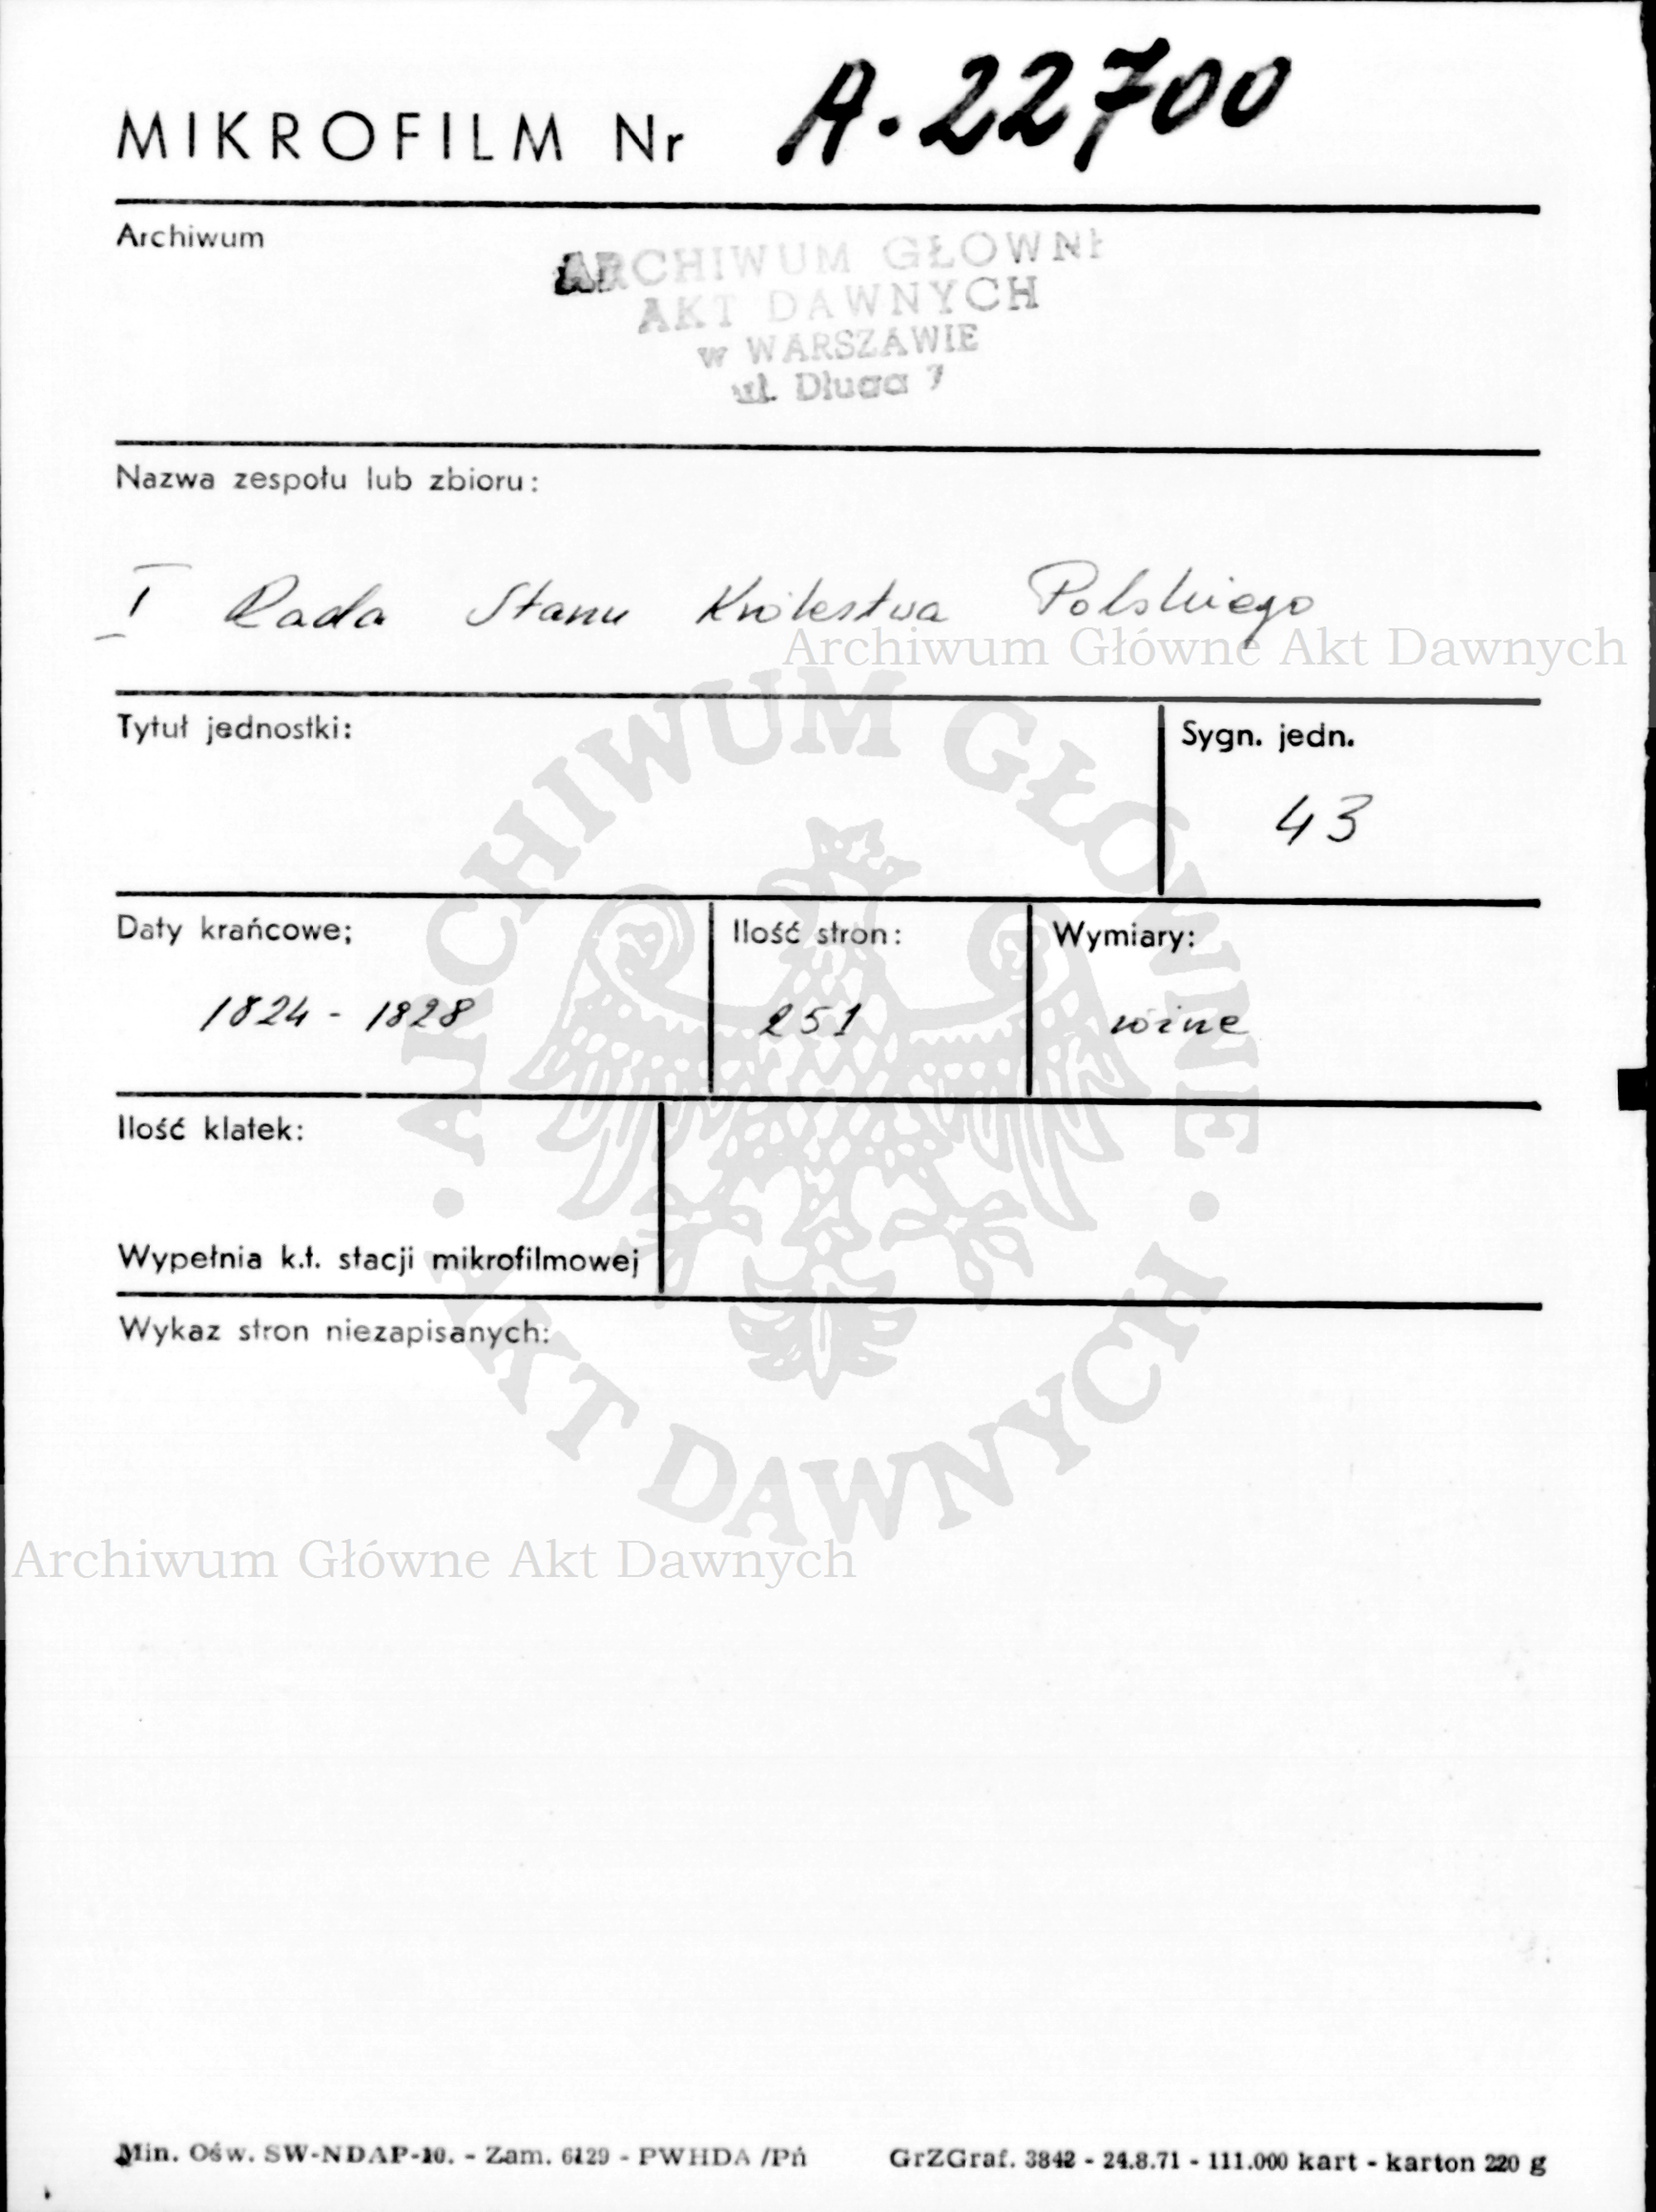 MIKROFILM Nr A.22700
Archiwum
ARCHIWUM GŁOWNE
AKT DAWNYCH
w WARSZAWIE
ul. Długa 7
Nazwa zespołu lub zbioru:
I Rada Stanu Królestwa Polskiego
Archiwum Główne Akt Dawnych
Tytuł jednostki:
Sygn. jedn.
43
ARCHIWUM GŁÓWNE
Daty krańcowe;
Ilość stron:
Wymiary:
1824 - 1828
251
różne
Ilość klatek:
Wypełnia k.t. stacji mikrofilmowej
Wykaz stron niezapisanych:
· AKT DAWNYCH ·
Archiwum Główne Akt Dawnych
Min. Ośw. SW-NDAP-10. - Zam. 6129 - PWHDA /Pń
GrZGraf. 3842 - 24.8.71 - 111.000 kart - karton 220 g